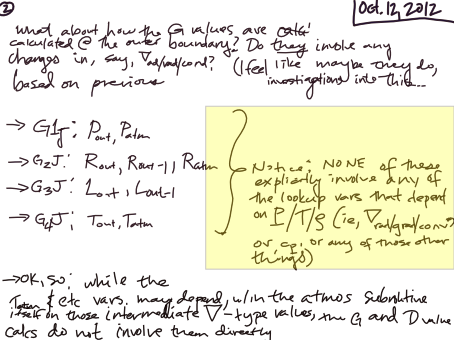 ②
Oct. 12, 2012
what about how the G values are calc'
calculated @ the outer boundary? Do they involve any
changes in, say, ∇rad/ad/cond? (I feel like maybe they do,
based on previous investigations into this...
→ G1J: Pout, Patm
→ G2J: Rout, Rout-1, Ratm
→ G3J: Lout, Lout-1
→ G4J: Tout, Tatm
Notice: NONE of these
explicitly involve any of
the lookup vars that depend
on P/T/ρ (ie, ∇rad/grad/conv,
or cp, or any of those other
things)
→OK, so: while the
Tatm & etc vars. may depend, w/in the atmos subroutine
itself on those intermediate ∇-type values, the G and D value
calcs do not involve them directly